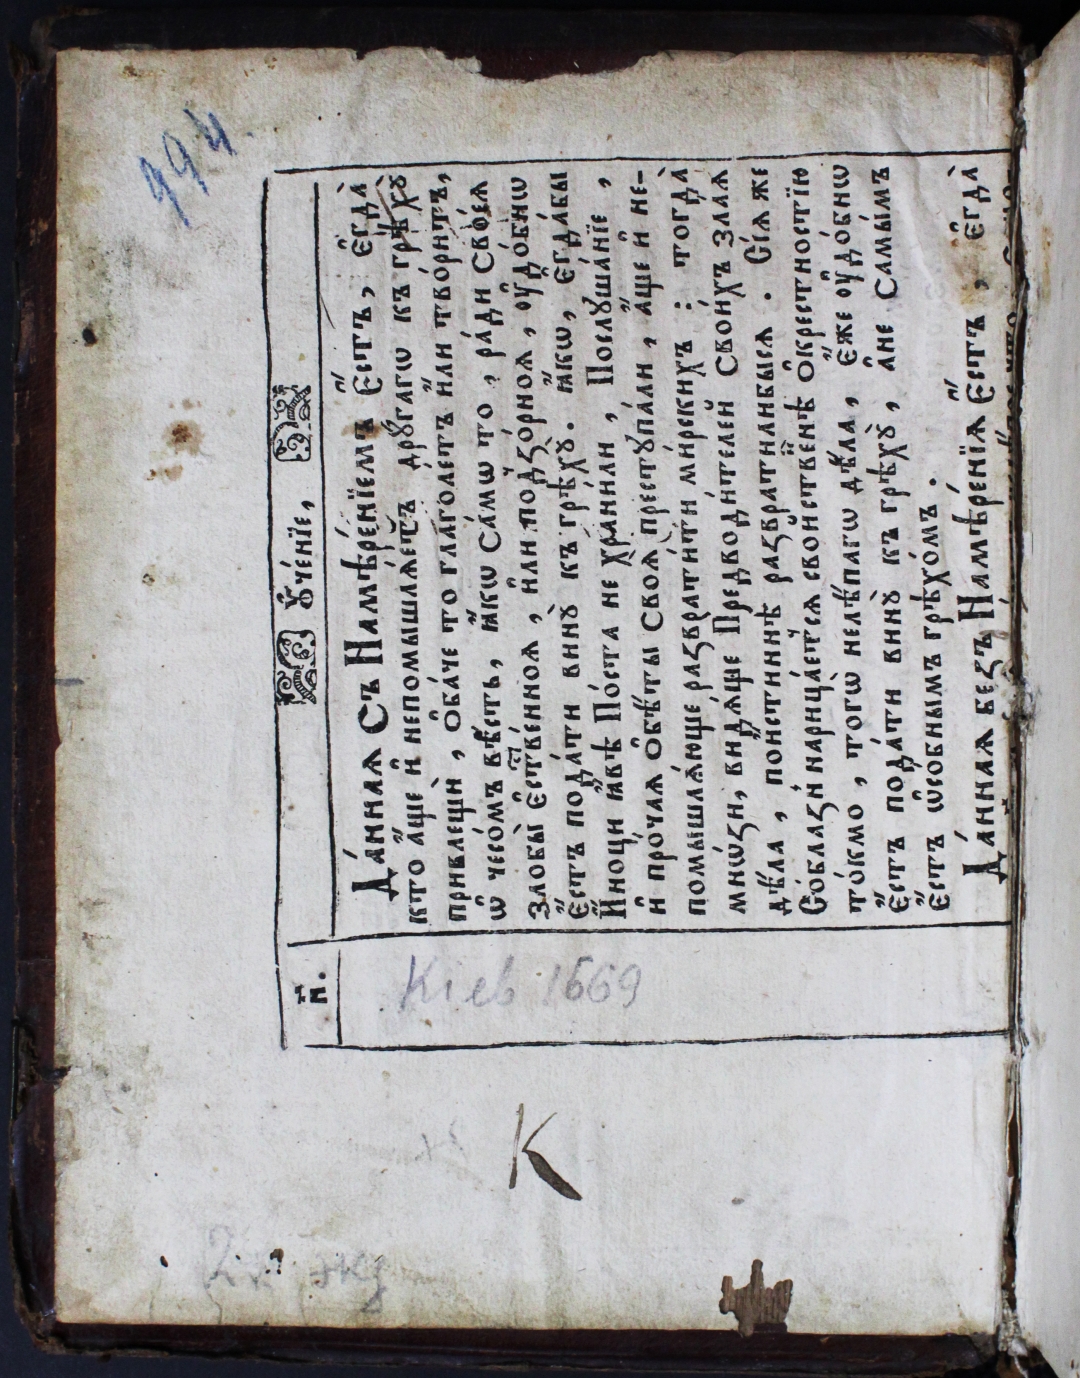 994
н҃.
Оу҆че́нїе,
Да́ннаѧ съ Намѣ́ренїемъ Є҆́стъ, є҆гда̀
кто а҆́ще и҆ непомышлѧ́етъ дрꙋ́гагѡ къ грѣхꙋ̀
привлещѝ, ѻ҆ба́че то глаго́летъ и҆лѝ твори́тъ,
ѡ҆ чесо́мъ вѣ́сть, ꙗ҆́кѡ са́мѡ то, ра́ди своеѧ̀
Зло́бы є҆сте́ственноѧ, и҆лѝ подзо́рноѧ, оудо́бнѡ
Є҆́стъ пода́ти винꙋ̀ къ грѣхꙋ̀. ꙗ҆́кѡ, є҆гда́бы
И҆́ноци ꙗ҆́вѣ По́ста не храни́ли, Послꙋша́нїе,
и҆ про́чаѧ ѻ҆бѣ́ты своѧ̀ престꙋпа́ли, а҆́ще и҆ не-
помышлѧ́юще развратѝти ми́рскихъ: тогда̀
мно́ѕи, ви́дѧще Предводи́телей Свои́хъ злаѧ
дѣ́ла, пои́стиннѣ разврати́либысѧ. Сі́ѧ же
Со́блазнь нарица́етсѧ сво́йственѣ ѻ҆кре́стностїю
то́кмо, тогѡ̀ нелѣ́пагѡ дѣ́ла, є҆́же оудо́бнѡ
Є҆́стъ пода́ти винꙋ̀ къ грѣхꙋ̀, а҆не Самы́мъ
Є҆́стъ ѡ҆со́бнымъ грѣхо́мъ.
Да́ннаѧ без Намѣ́ренїѧ Є҆́стъ, є҆гда̀
Кіев 1669
К